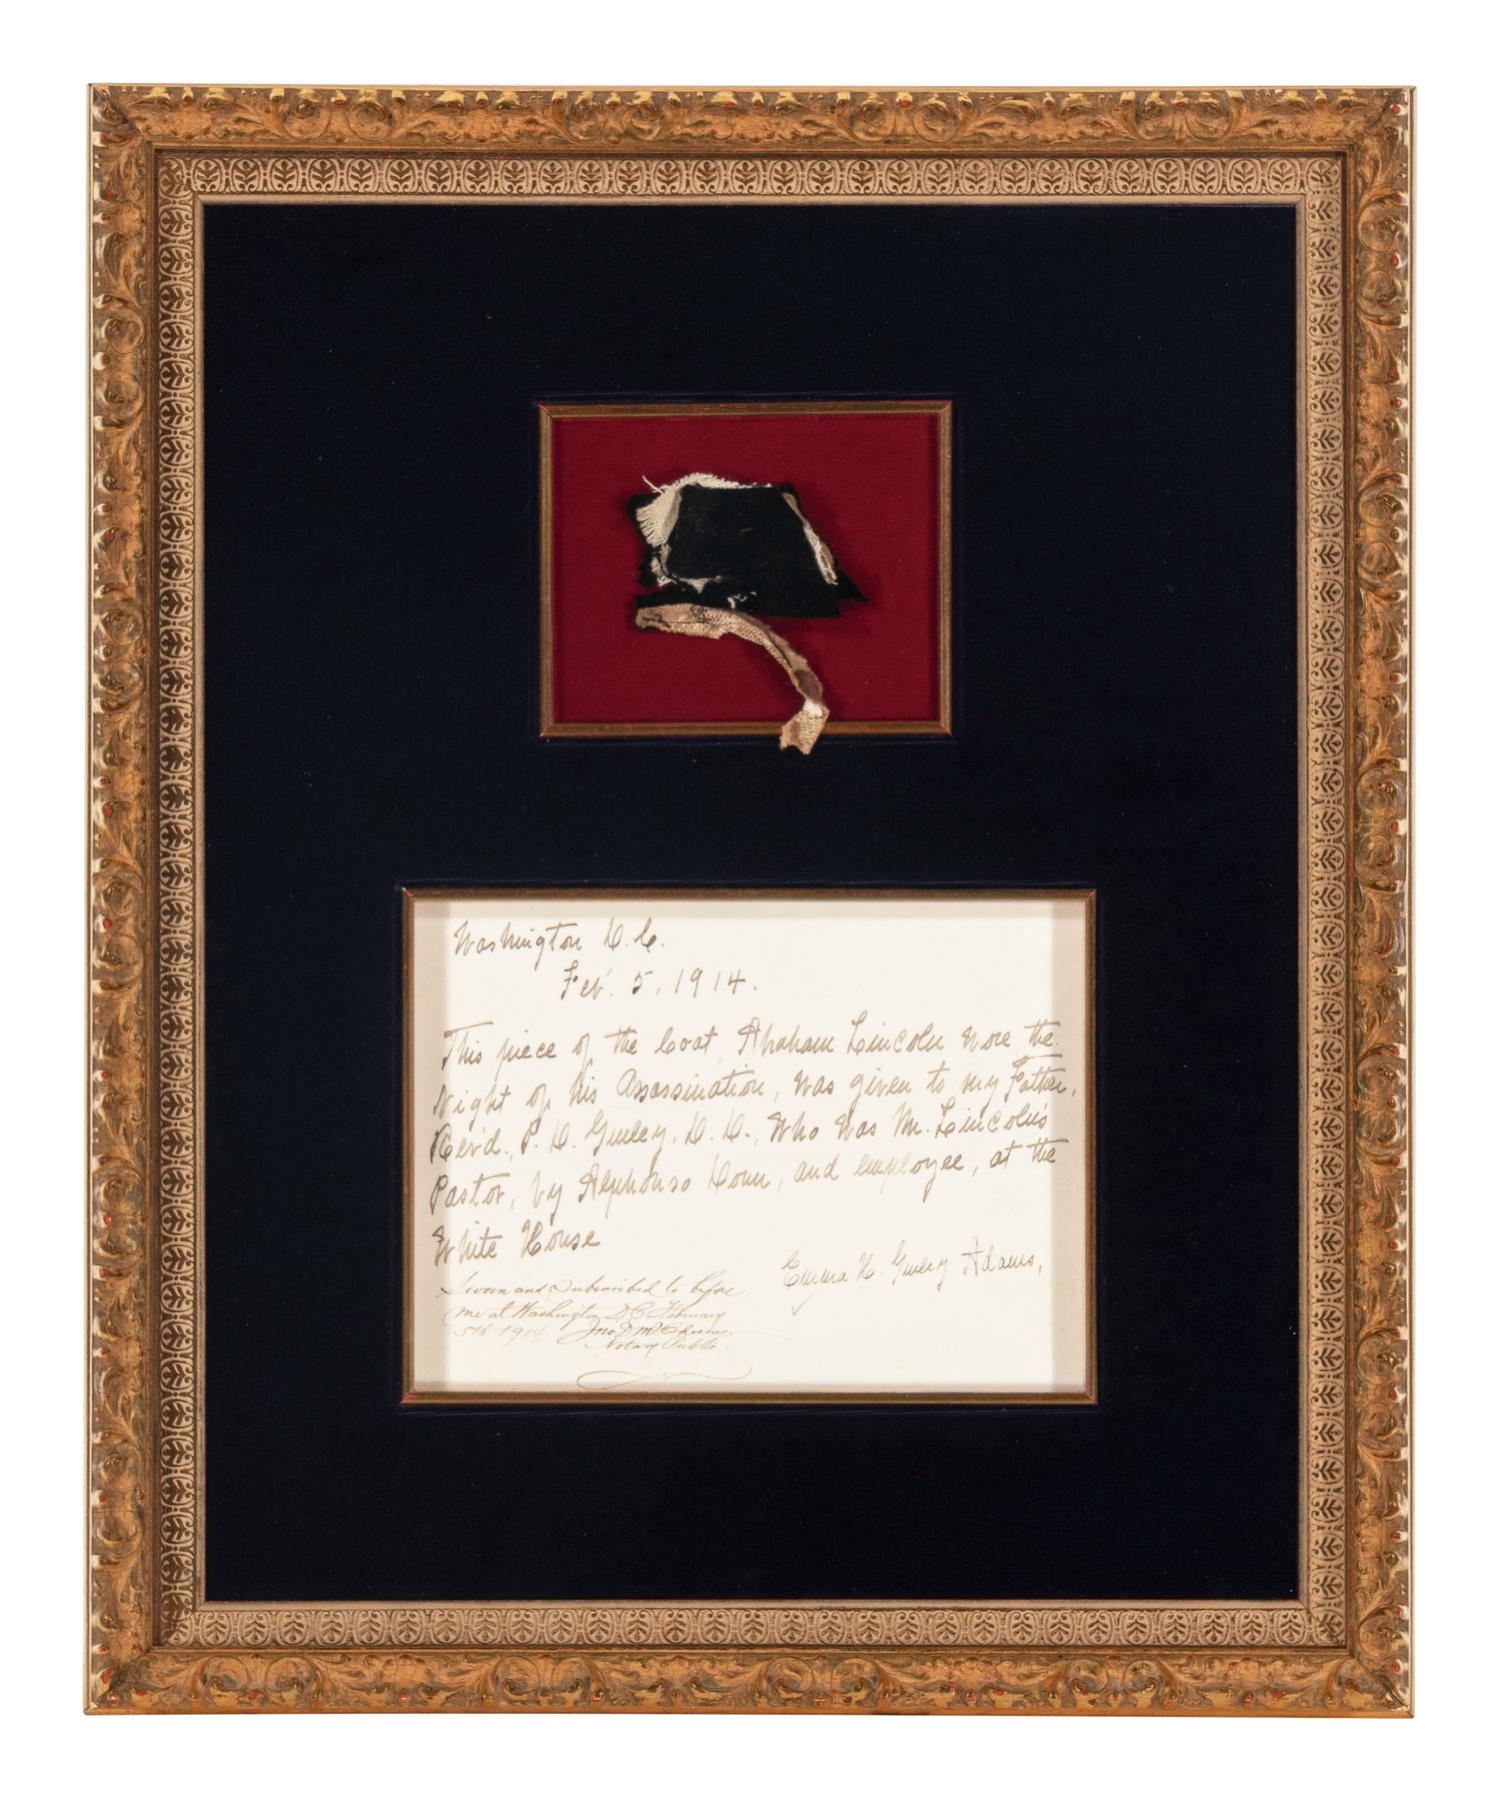 Washington D.C.
Feb'. 5, 1914.
This piece of the Coat, Abraham Lincoln wore the
Night of his Assassination, was given to my Father,
Rev'd., P. D. Gurley, D. D., Who was Mr. Lincoln's
Pastor, by Alphonso Donn, and employee, at the
White House
Emma H. Gurley Adams,
Sworn and Subscribed to before
me at Washington D.C. February
5th 1914 Jno. D.
Notary Public.